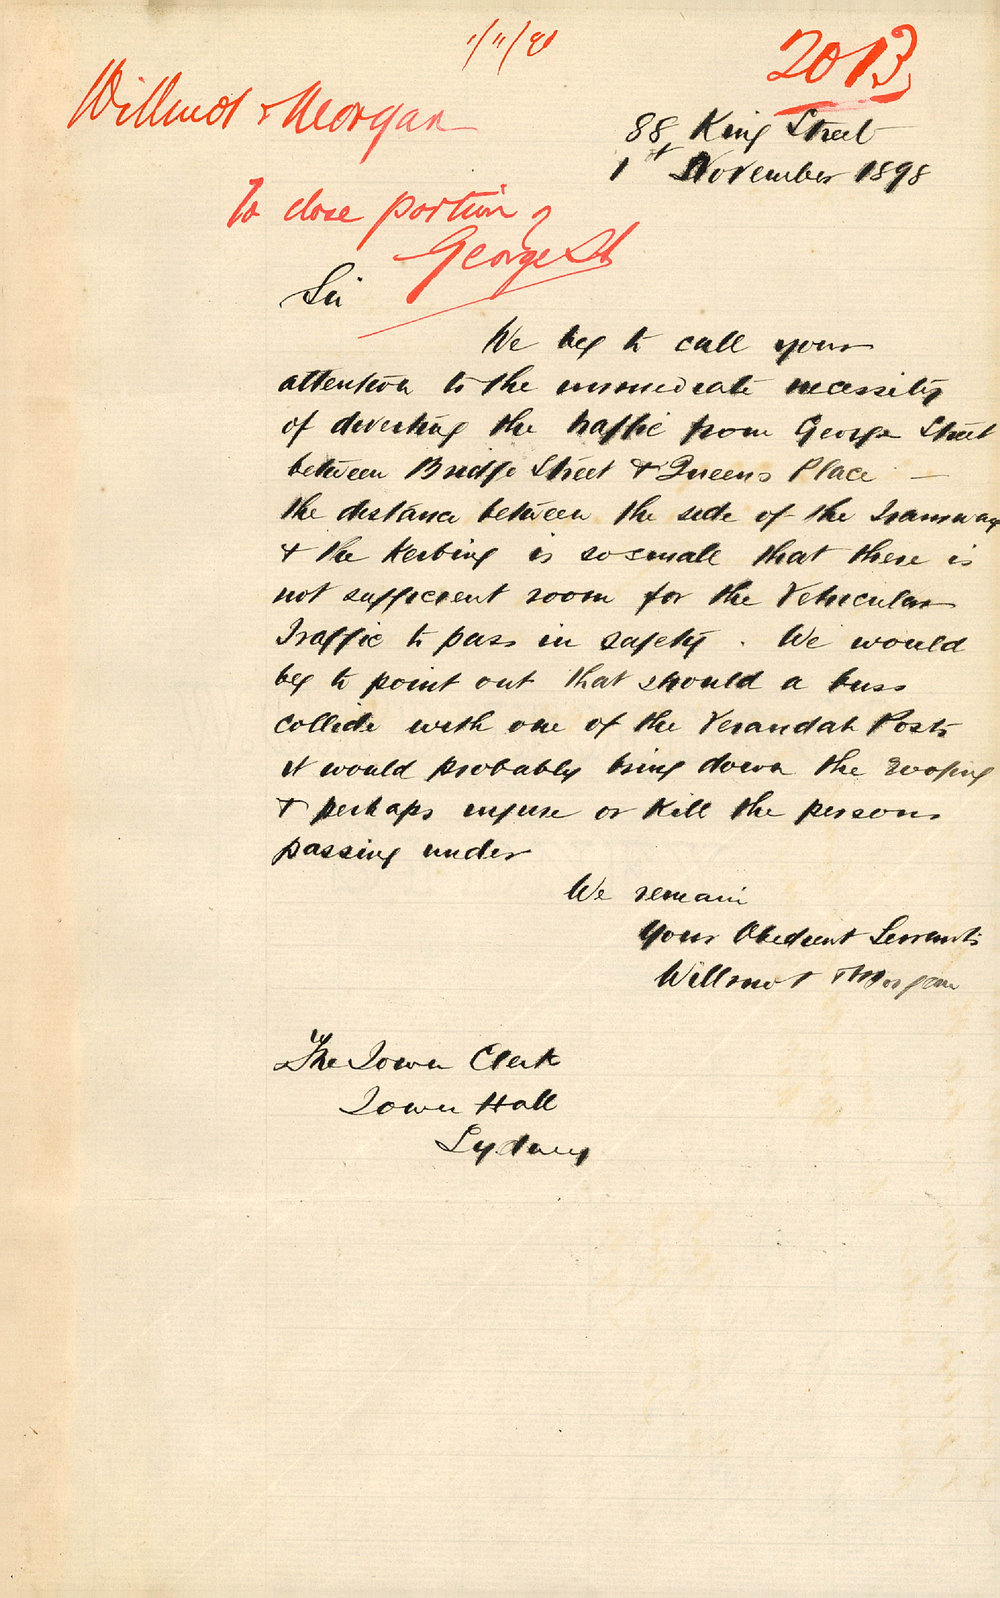 1/11/98
2013
Willmot & Morgan
88 King Street
1st November 1898
To close portion of
George St
Sir
We beg to call your
attention to the immediate necessity
of diverting the traffic from George Street
between Bridge Street & Queens Place —
the distance between the side of the Tramway
& the Kerbing is so small that there is
not sufficient room for the Vehicular
Traffic to pass in safety . We would
beg to point out that should a buss
collide with one of the Verandah Posts
it would probably bring down the roofing
& perhaps injure or kill the persons
passing under
We remain
Your Obedient Servants
Willmot & Morgan
The Town Clerk
Town Hall
Sydney